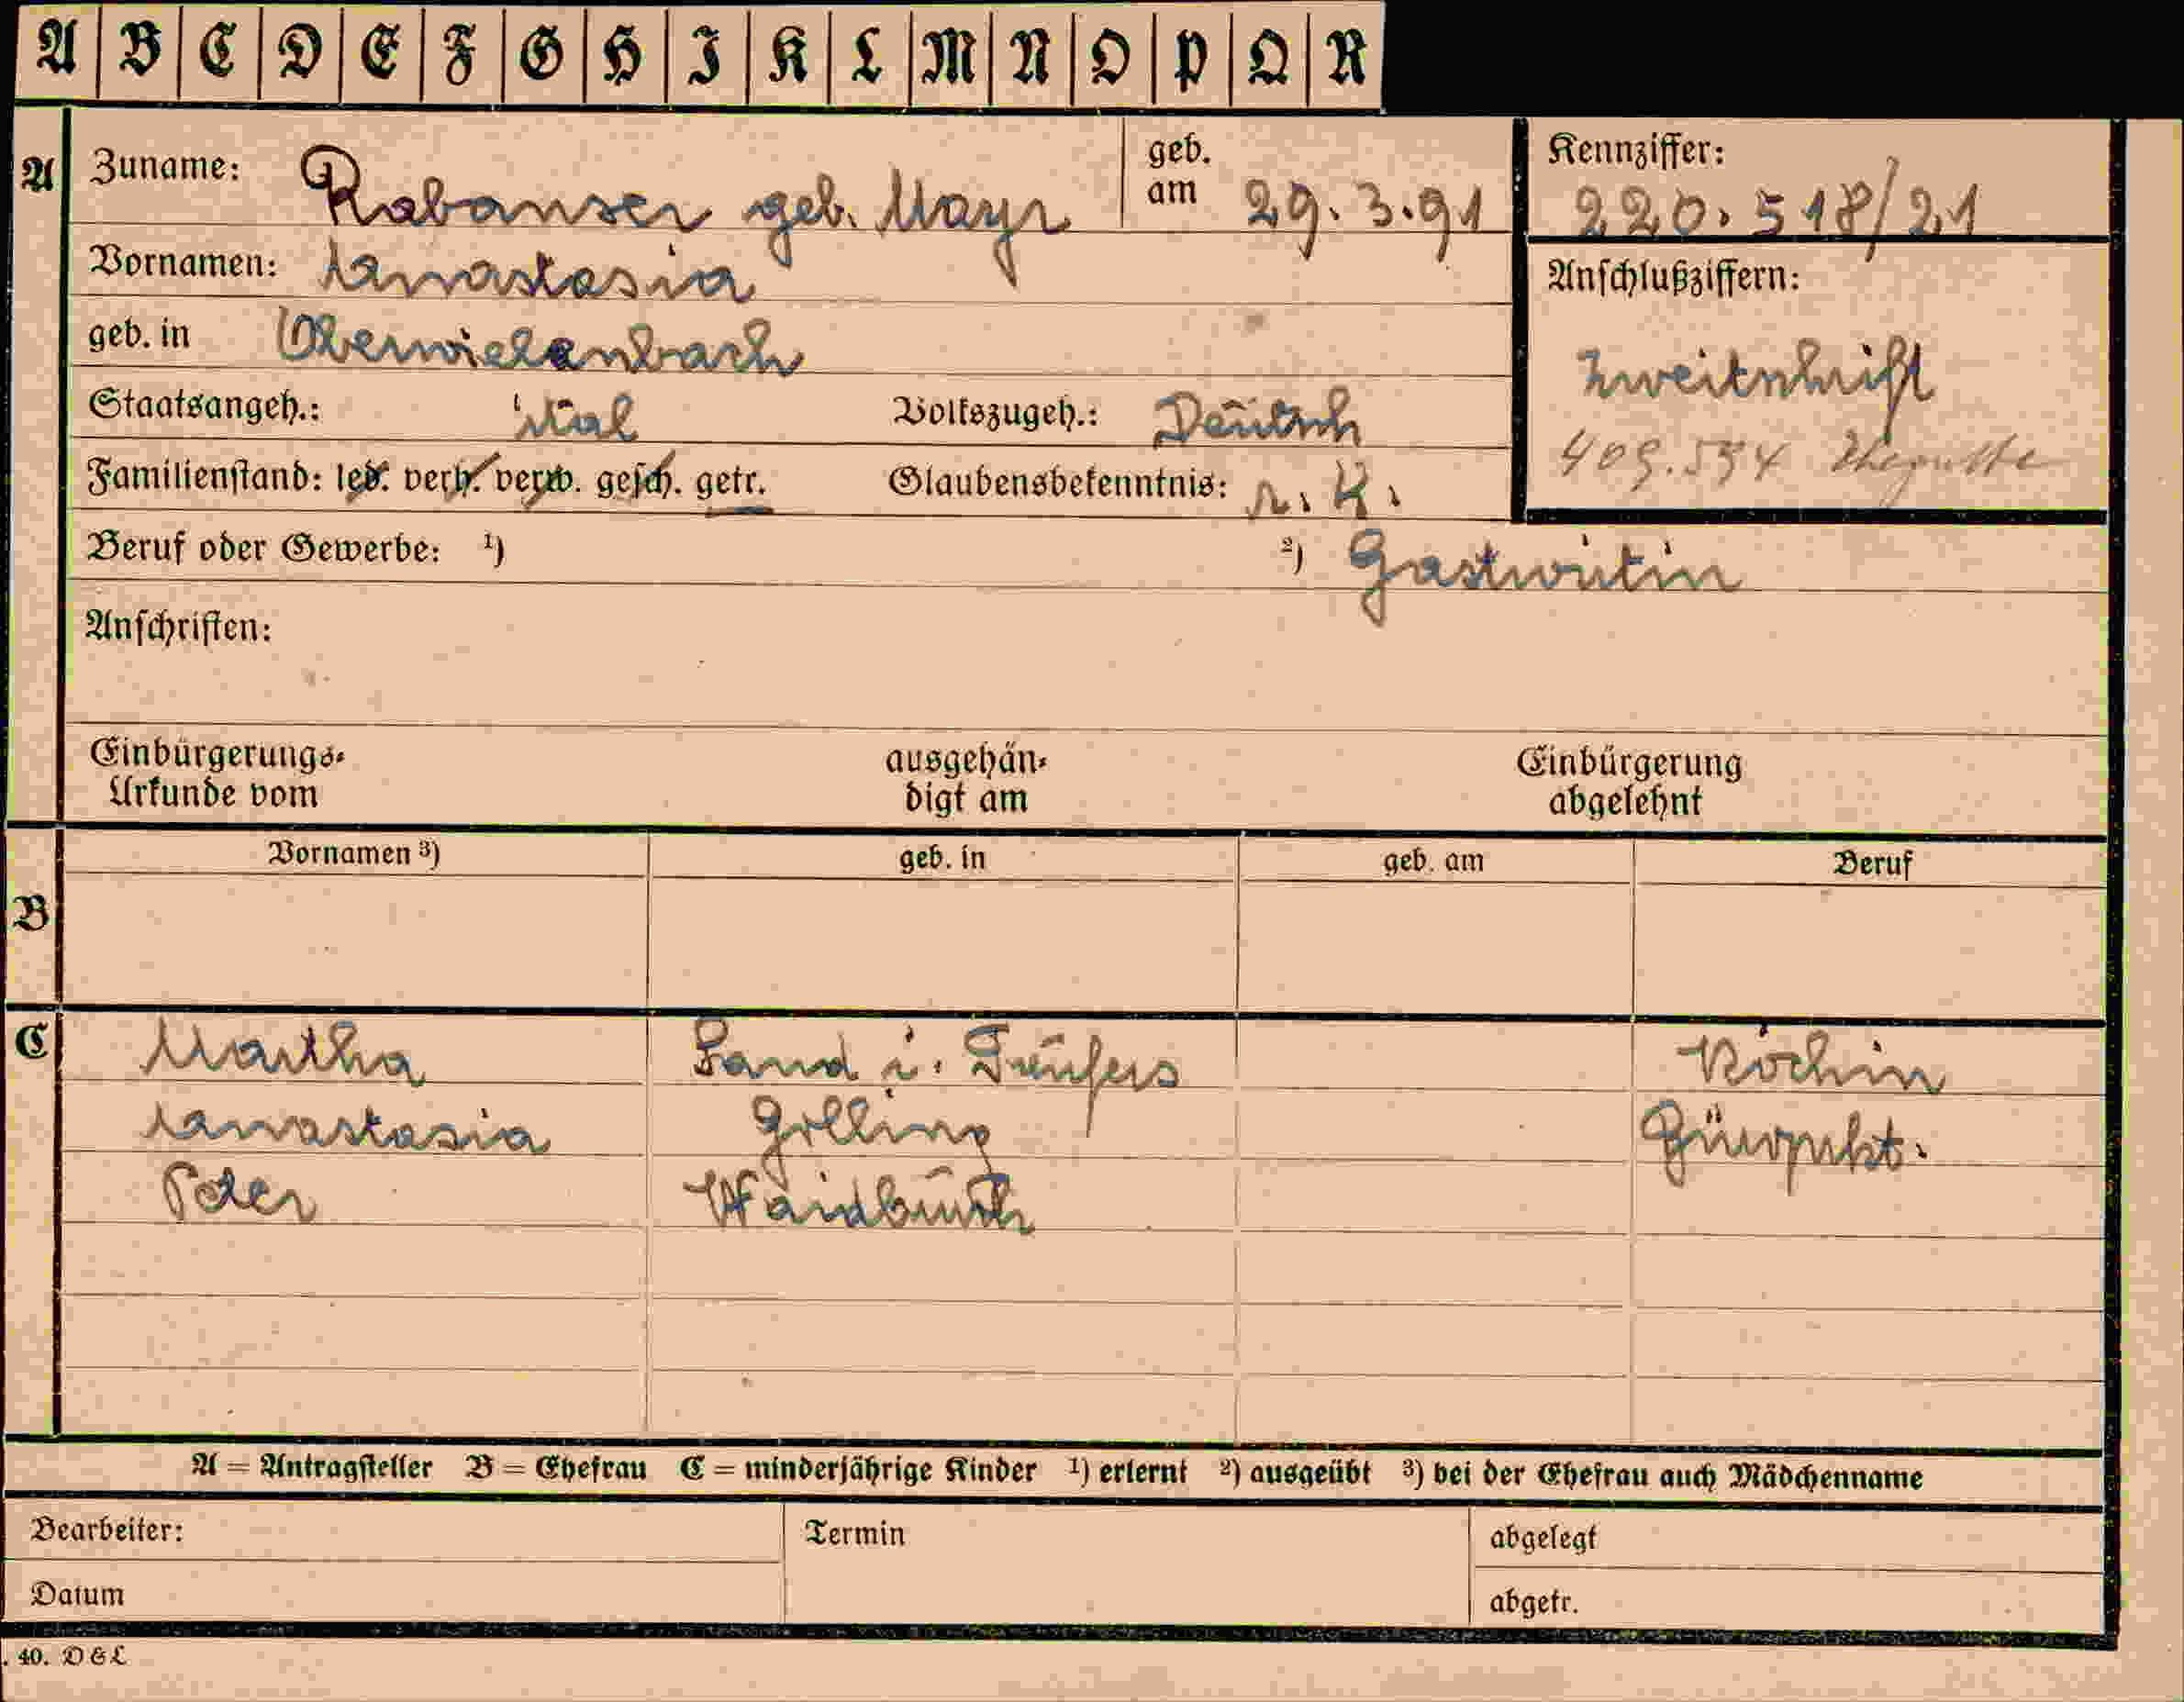 A B C D E F G H I K L M N O P Q R
A
Zuname: Rabanser geb. Mayr
geb. am 29.3.91
Kennziffer:
220.518/21
Vornamen: Anastasia
Anschlußziffern:
geb. in Oberwielenbach
Zweitschrift
Staatsangeh.: Ital Volkszugeh.: Deutsch
409.594
Familienstand: led. verh. verw. gesch. getr. Glaubensbekenntnis: r. K.
Beruf oder Gewerbe: 1) 2) Gastwirtin
Anschriften:
Einbürgerungs-
Urkunde vom
ausgehän-
digt am
Einbürgerung
abgelehnt
B
Vornamen 3) geb. in geb. am Beruf
C
Martha Sand i. Taufers Köchin
Anastasia Golling
Peter Waidbruck
A = Antragsteller B = Ehefrau C = minderjährige Kinder 1) erlernt 2) ausgeübt 3) bei der Ehefrau auch Mädchenname
Bearbeiter: Termin abgelegt
Datum abgetr.
. 40. D & L